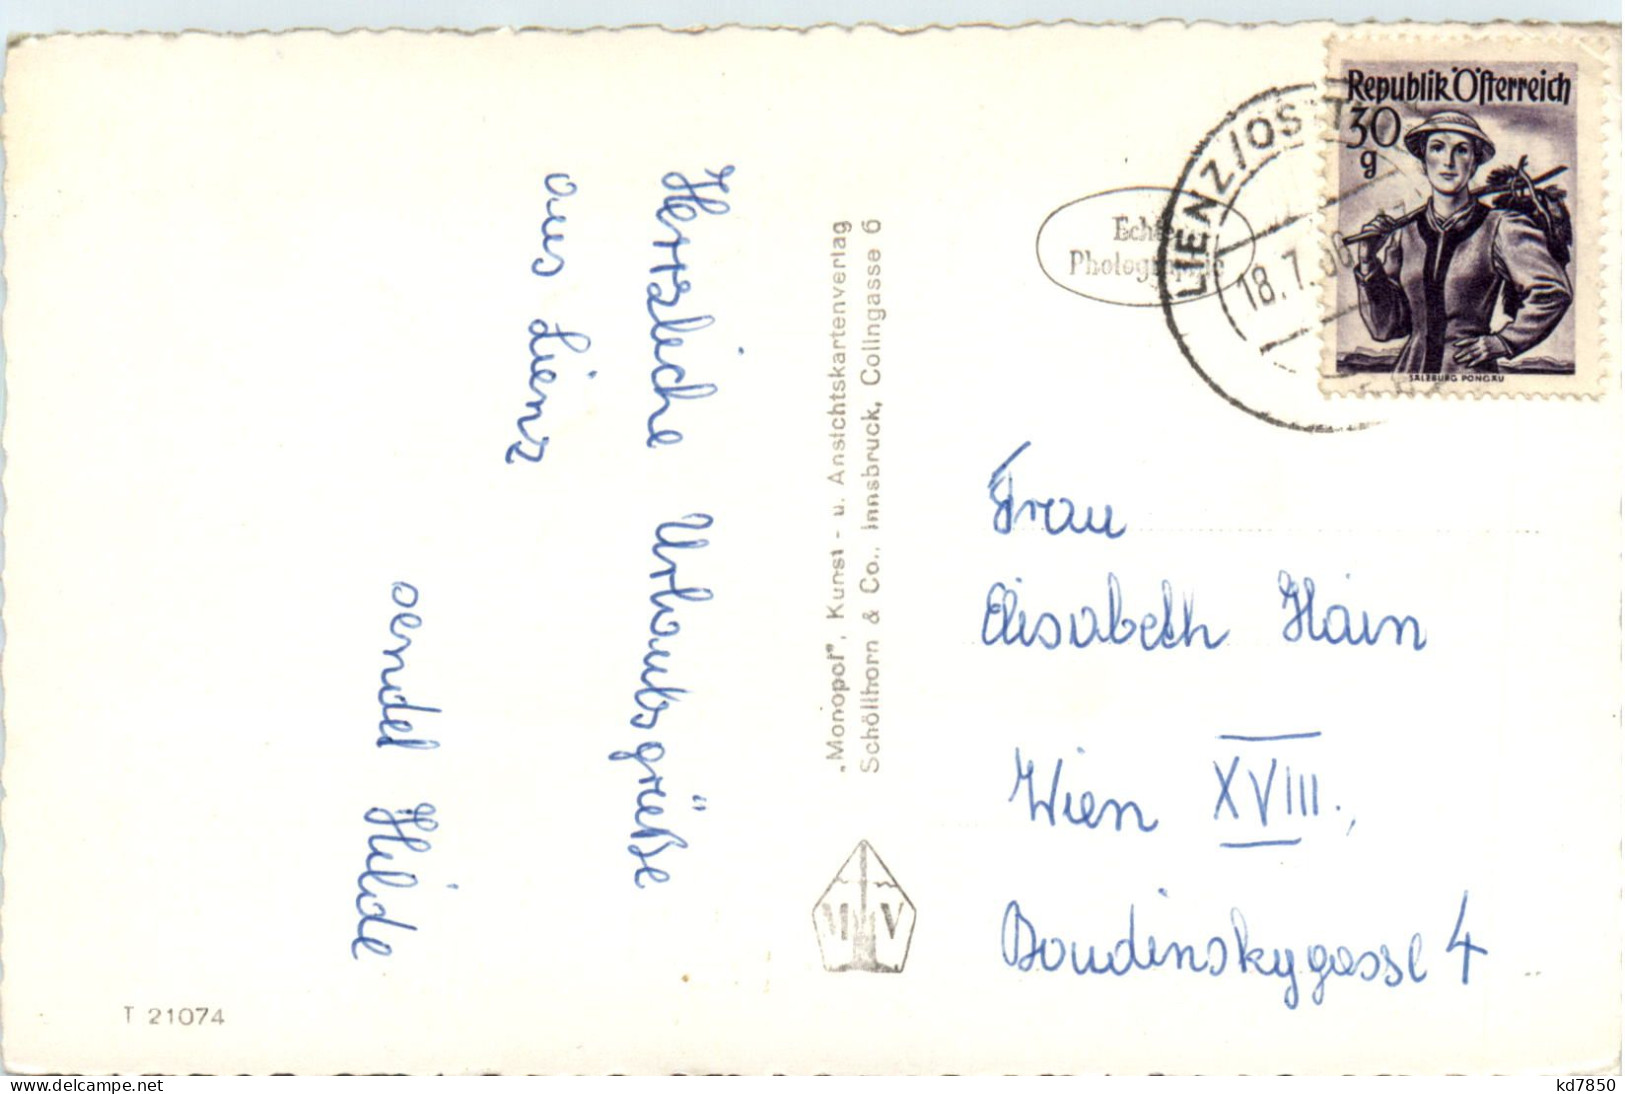 Herzliche Urlaubsgrüße
aus Lienz
sendet Hilde
T 21074
„Monopol", Kunst- u. Ansichtskartenverlag
Schöllhorn & Co., Innsbruck, Collingasse 6
M V
Echte
Photographie
LIENZ/OST
18.7.60
Republik Österreich
30
g
SALZBURG PONGAU
Frau
Elisabeth Hain
Wien XVIII.,
Boudinskygasse 4
delcampe.net
kd7850